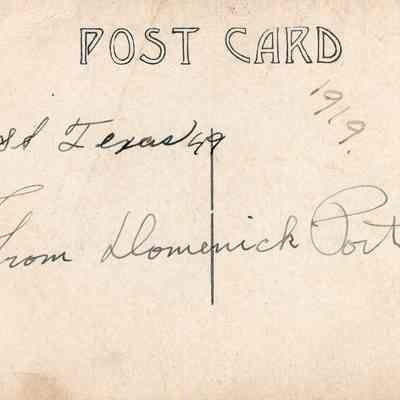 POST CARD
1919.
USS Texas 49
From Domenick Port